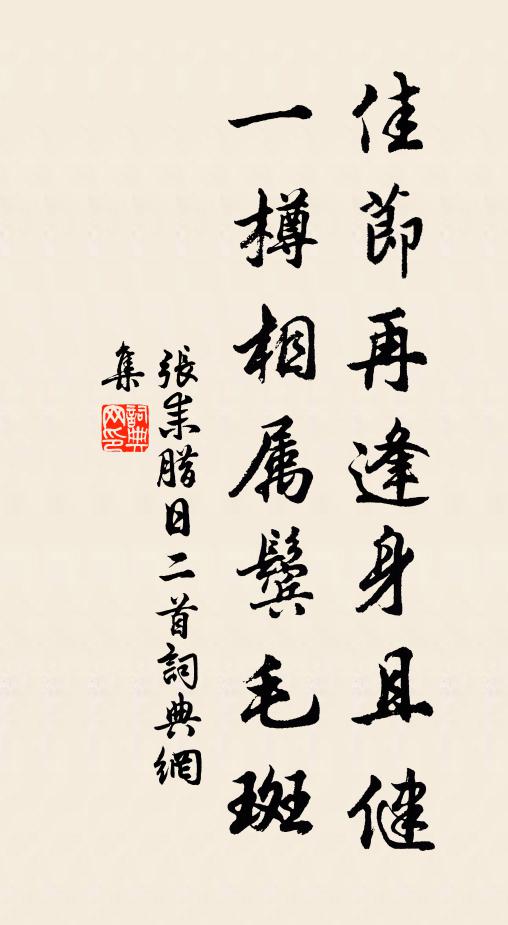 佳節再逢身且健
一樽相属鬓毛斑
張耒腊日二首詞典網
集
詞典
网印